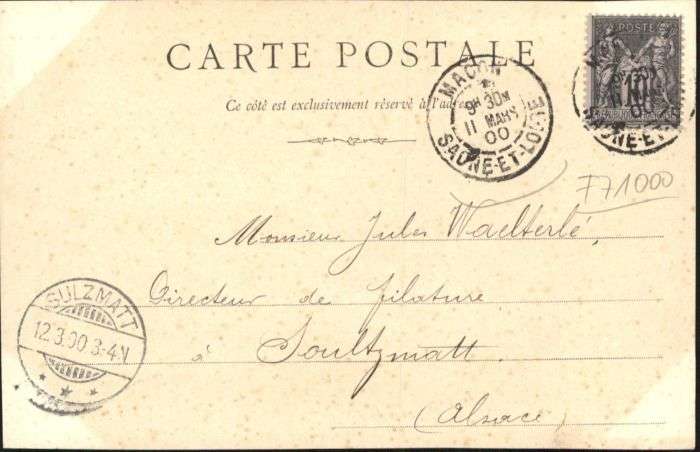 CARTE POSTALE
Ce côté est exclusivement réservé à l'adresse
MACON
9H 30M
11 MARS
00
SAONE-ET-LOIRE
POSTE
10
77 1000
Monsieur Jules Waelterlé,
Directeur de filature
à Soultzmatt.
(Alsace)
SULZMATT
12.3.00.3-4N